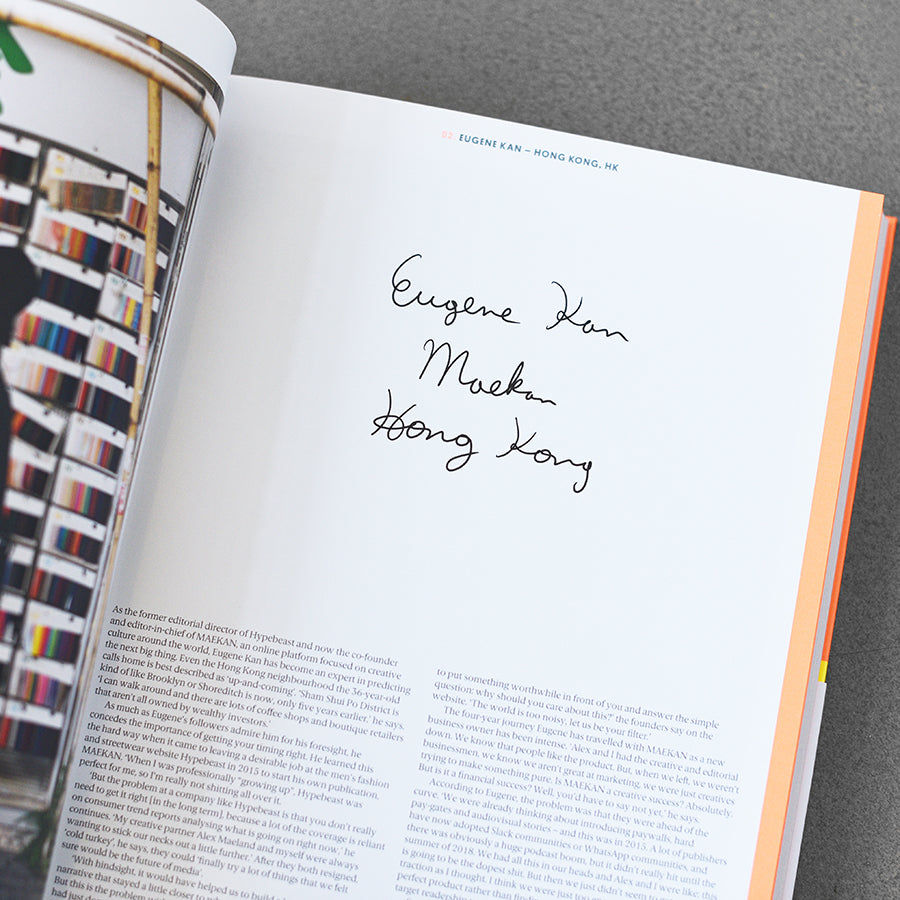 02. EUGENE KAN – HONG KONG, HK
Eugene Kan
Maekan
Hong Kong
As the former editorial director of Hypebeast and now the co-founder
and editor-in-chief of MAEKAN, an online platform focused on creative
culture around the world, Eugene Kan has become an expert in predicting
the next big thing. Even the Hong Kong neighbourhood the 36-year-old
calls home is best described as 'up-and-coming'. 'Sham Shui Po District is
kind of like Brooklyn or Shoreditch is now, only five years earlier,' he says.
'I can walk around and there are lots of coffee shops and boutique retailers
that aren't all owned by wealthy investors.'
As much as Eugene's followers admire him for his foresight, he
concedes the importance of getting your timing right. He learned this
the hard way when it came to leaving a desirable job at the men's fashion
and streetwear website Hypebeast in 2015 to start his own publication,
MAEKAN. 'When I was professionally "growing up", Hypebeast was
perfect for me, so I'm really not shitting all over it.
'But the problem at a company like Hypebeast is that you don't really
need to get it right [in the long term], because a lot of the coverage is reliant
on consumer trend reports analysing what is going on right now,' he
continues. 'My creative partner Alex Maeland and myself were always
wanting to stick our necks out a little further.' After they both resigned,
'cold turkey', he says, they could 'finally try a lot of things that we felt
sure would be the future of media'.
'With hindsight, it would have helped us to build
narrative that stayed a little closer to
But this is the problem
had just
to put something worthwhile in front of you and answer the simple
question: why should you care about this?' the founders say on the
website. 'The world is too noisy; let us be your filter.'
The four-year journey Eugene has travelled with MAEKAN as a new
business owner has been intense. 'Alex and I had the creative and editorial
down. We know that people like the product. But, when we left, we weren't
businessmen, we know we aren't great at marketing, we were just creatives
trying to make something pure. Is MAEKAN a creative success? Absolutely.
But is it a financial success? Well, you'd have to say not yet,' he says.
According to Eugene, the problem was that they were ahead of the
curve. 'We were already thinking about introducing paywalls, hard
pay-gates and audiovisual stories – and this was in 2015. A lot of publishers
have now adopted Slack communities or WhatsApp communities, and
there was obviously a huge podcast boom, but it didn't really hit until the
summer of 2018. We had all this on our heads and Alex and I were like, this
is going to be the dopest shit. But then we just didn't seem to
traction as I thought. I think we were just too
perfect product rather than
target